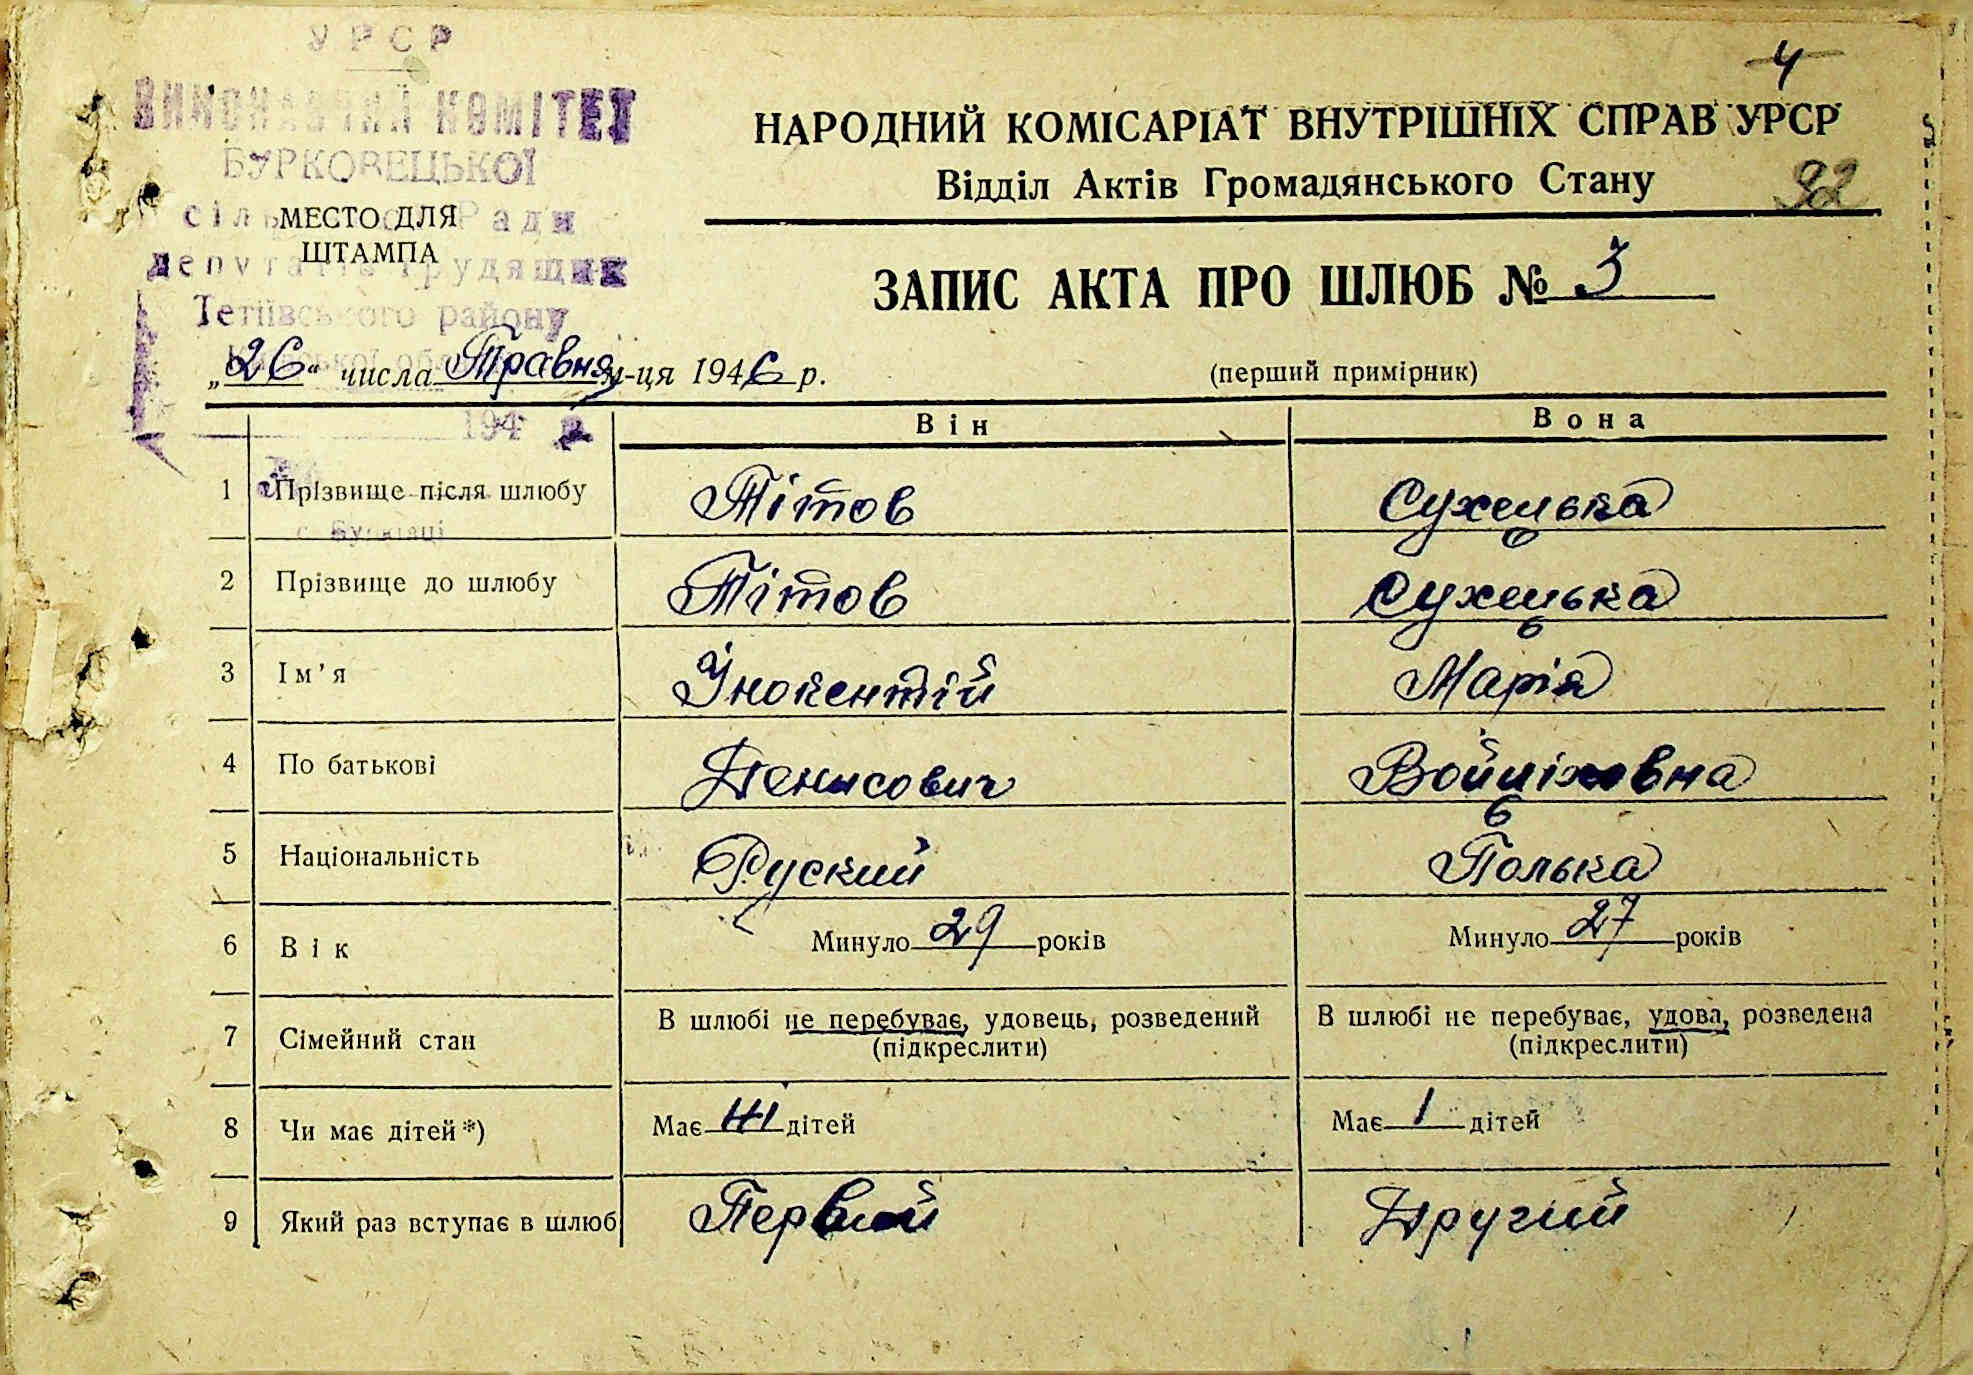 4
УРСР
ВИКОНАВЧИЙ КОМІТЕТ
БУРКОВЕЦЬКОЇ
сільської Ради
депутатів трудящих
Тетіївського району
Київської обл
194 р.
с. Бурківці
МЕСТО ДЛЯ
ШТАМПА
НАРОДНИЙ КОМІСАРІАТ ВНУТРІШНІХ СПРАВ УРСР
Відділ Актів Громадянського Стану
92
ЗАПИС АКТА ПРО ШЛЮБ № 3
„26“ числа Травня м-ця 1946 р.
(перший примірник)
Він Вона
1 Прізвище після шлюбу Тітов Сухецька
2 Прізвище до шлюбу Тітов Сухецька
3 Ім'я Інокентій Марія
4 По батькові Денисович Войціховна
5 Національність Руский Полька
6 Вік Минуло 29 років Минуло 27 років
7 Сімейний стан В шлюбі не перебуває, удовець, розведений В шлюбі не перебуває, удова, розведена
(підкреслити) (підкреслити)
8 Чи має дітей *) Має дітей Має 1 дітей
9 Який раз вступає в шлюб Первий Другий